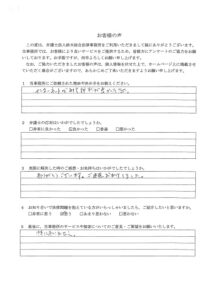 お客様の声
この度は、弁護士法人鈴木総合法律事務所をご利用いただきまして誠にありがとうございます。
当事務所では、お客様により良いサービスをご提供するため、皆様方にアンケートのご協力をお願い
しております。お手数ですが、何卒よろしくお願い申し上げます。
なお、ご協力いただきましたお客様の声は、個人情報を伏せた上で、ホームページ上に掲載させて
いただく場合がございますので、あらかじめご了承いただきますようお願い申し上げます。
1 当事務所にご依頼された理由やきっかけをお教えください。
インターネットで
2 弁護士の対応はいかがでしたでしょうか。
□非常に良かった □良かった □普通 □悪かった
3 無事に解決した時のご感想・お気持ちはいかがでしたでしょうか。
ありがとうございます。ご迷惑おかけしました。
4 お知り合いで法律問題を抱えている方がいらっしゃいましたら、ご紹介したいと思いますか。
□非常に思う 思う □あまり思わない □思わない
5 最後に、当事務所のサービスや相談についてのご意見・ご要望をお願いいたします。
特にありません。